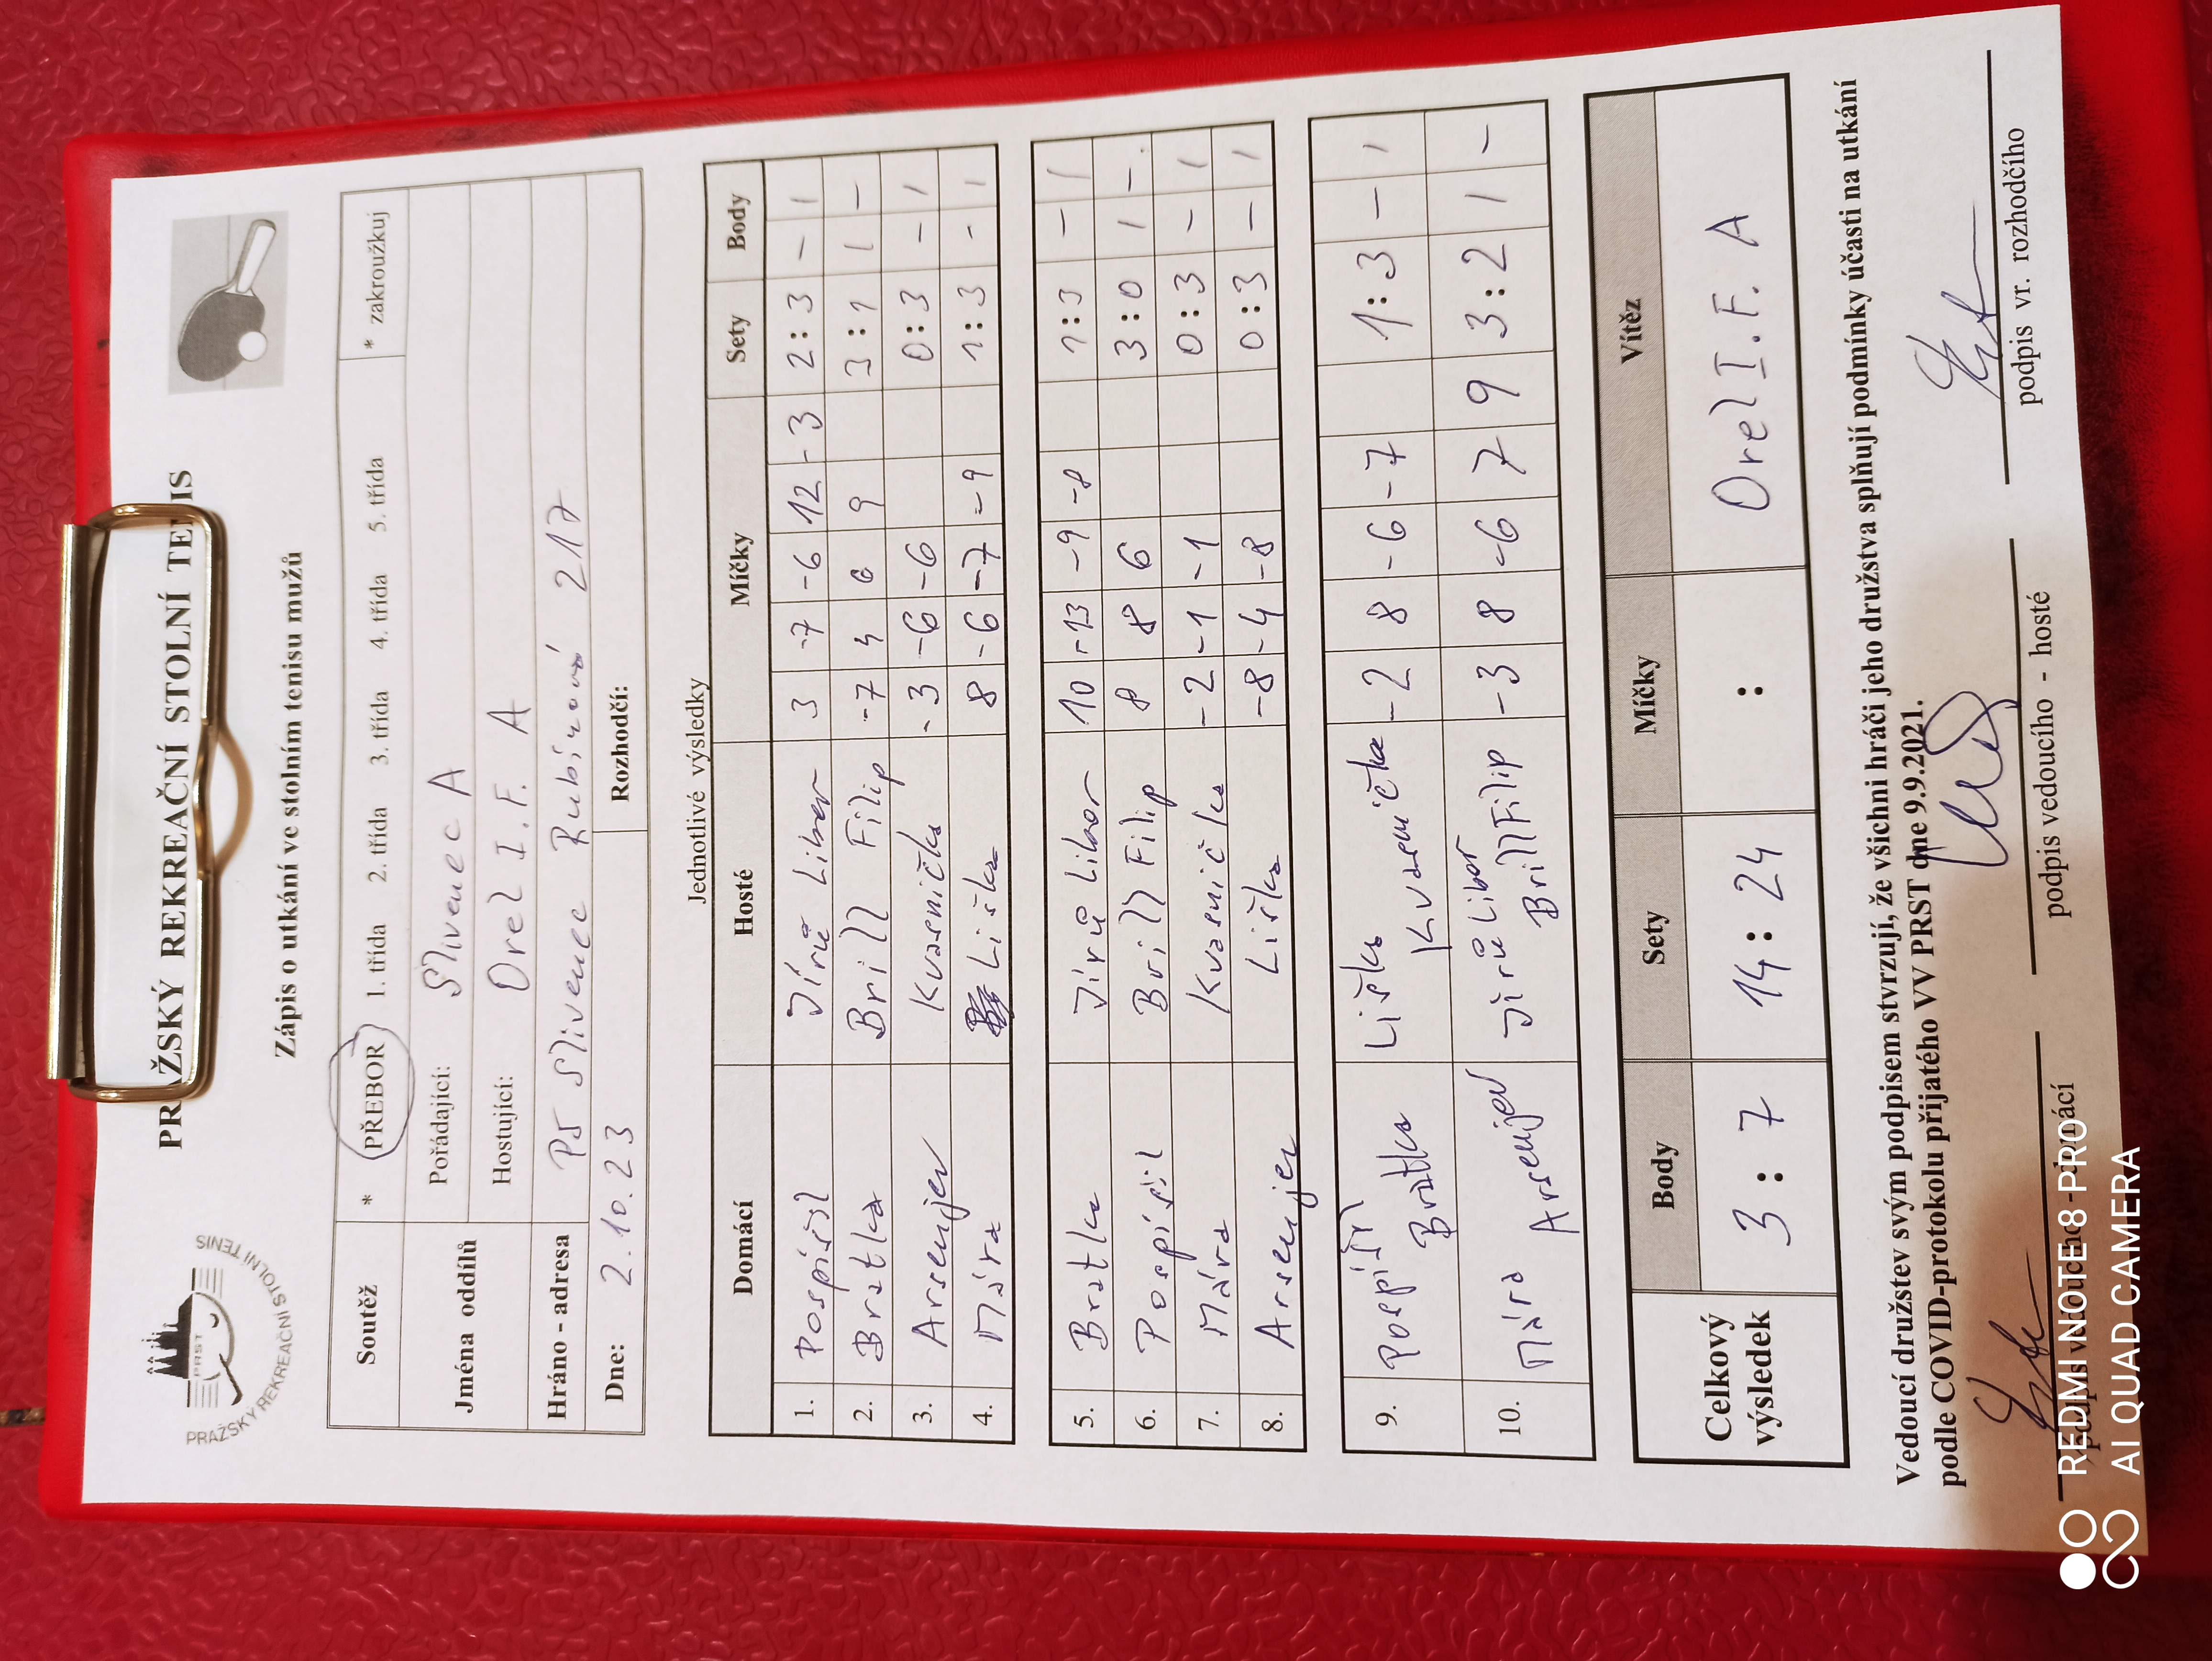 PRAŽSKÝ REKREAČNÍ STOLNÍ TENIS
PRST
PRAŽSKÝ REKREAČNÍ STOLNÍ TENIS
Zápis o utkání ve stolním tenisu mužů
Soutěž * PŘEBOR 1. třída 2. třída 3. třída 4. třída 5. třída * zakroužkuj
Jména oddílů Pořádající: Slivenec A
Hostující: Orel I. F. A
Hráno - adresa PJ Slivenec Rubínová 217
Dne: 2.10.23 Rozhodčí:
Jednotlivé výsledky
Domácí Hosté Míčky Sety Body
1. Pospíšil Jírů Libor 3 -7 -6 12 -3 2:3 - 1
2. Bratka Brill Filip -7 4 6 9 3:1 1 -
3. Arsenjev Kvasnička -3 -6 -6 0:3 - 1
4. Mára Liška 8 -6 -7 -9 1:3 - 1
5. Bratka Jírů Libor 10 -13 -9 -8 1:3 - 1
6. Pospíšil Brill Filip 8 8 6 3:0 1 -
7. Mára Kvasnička -2 -1 -1 0:3 - 1
8. Arsenjev Liška -8 -4 -8 0:3 - 1
9. Pospíšil Bratka Liška Kvasnička -2 8 -6 -7 1:3 - 1
10. Mára Arsenjev Jírů Libor Brill Filip -3 8 -6 7 9 3:2 1 -
Celkový výsledek Body Sety Míčky Vítěz
3 : 7 14 : 24 : Orel I. F. A
Vedoucí družstev svým podpisem stvrzují, že všichni hráči jeho družstva splňují podmínky účasti na utkání
podle COVID-protokolu přijatého VV PRST dne 9.9.2021.
podpis vedoucího - domácí podpis vedoucího - hosté podpis vr. rozhodčího
REDMI NOTE 8 PRO
AI QUAD CAMERA